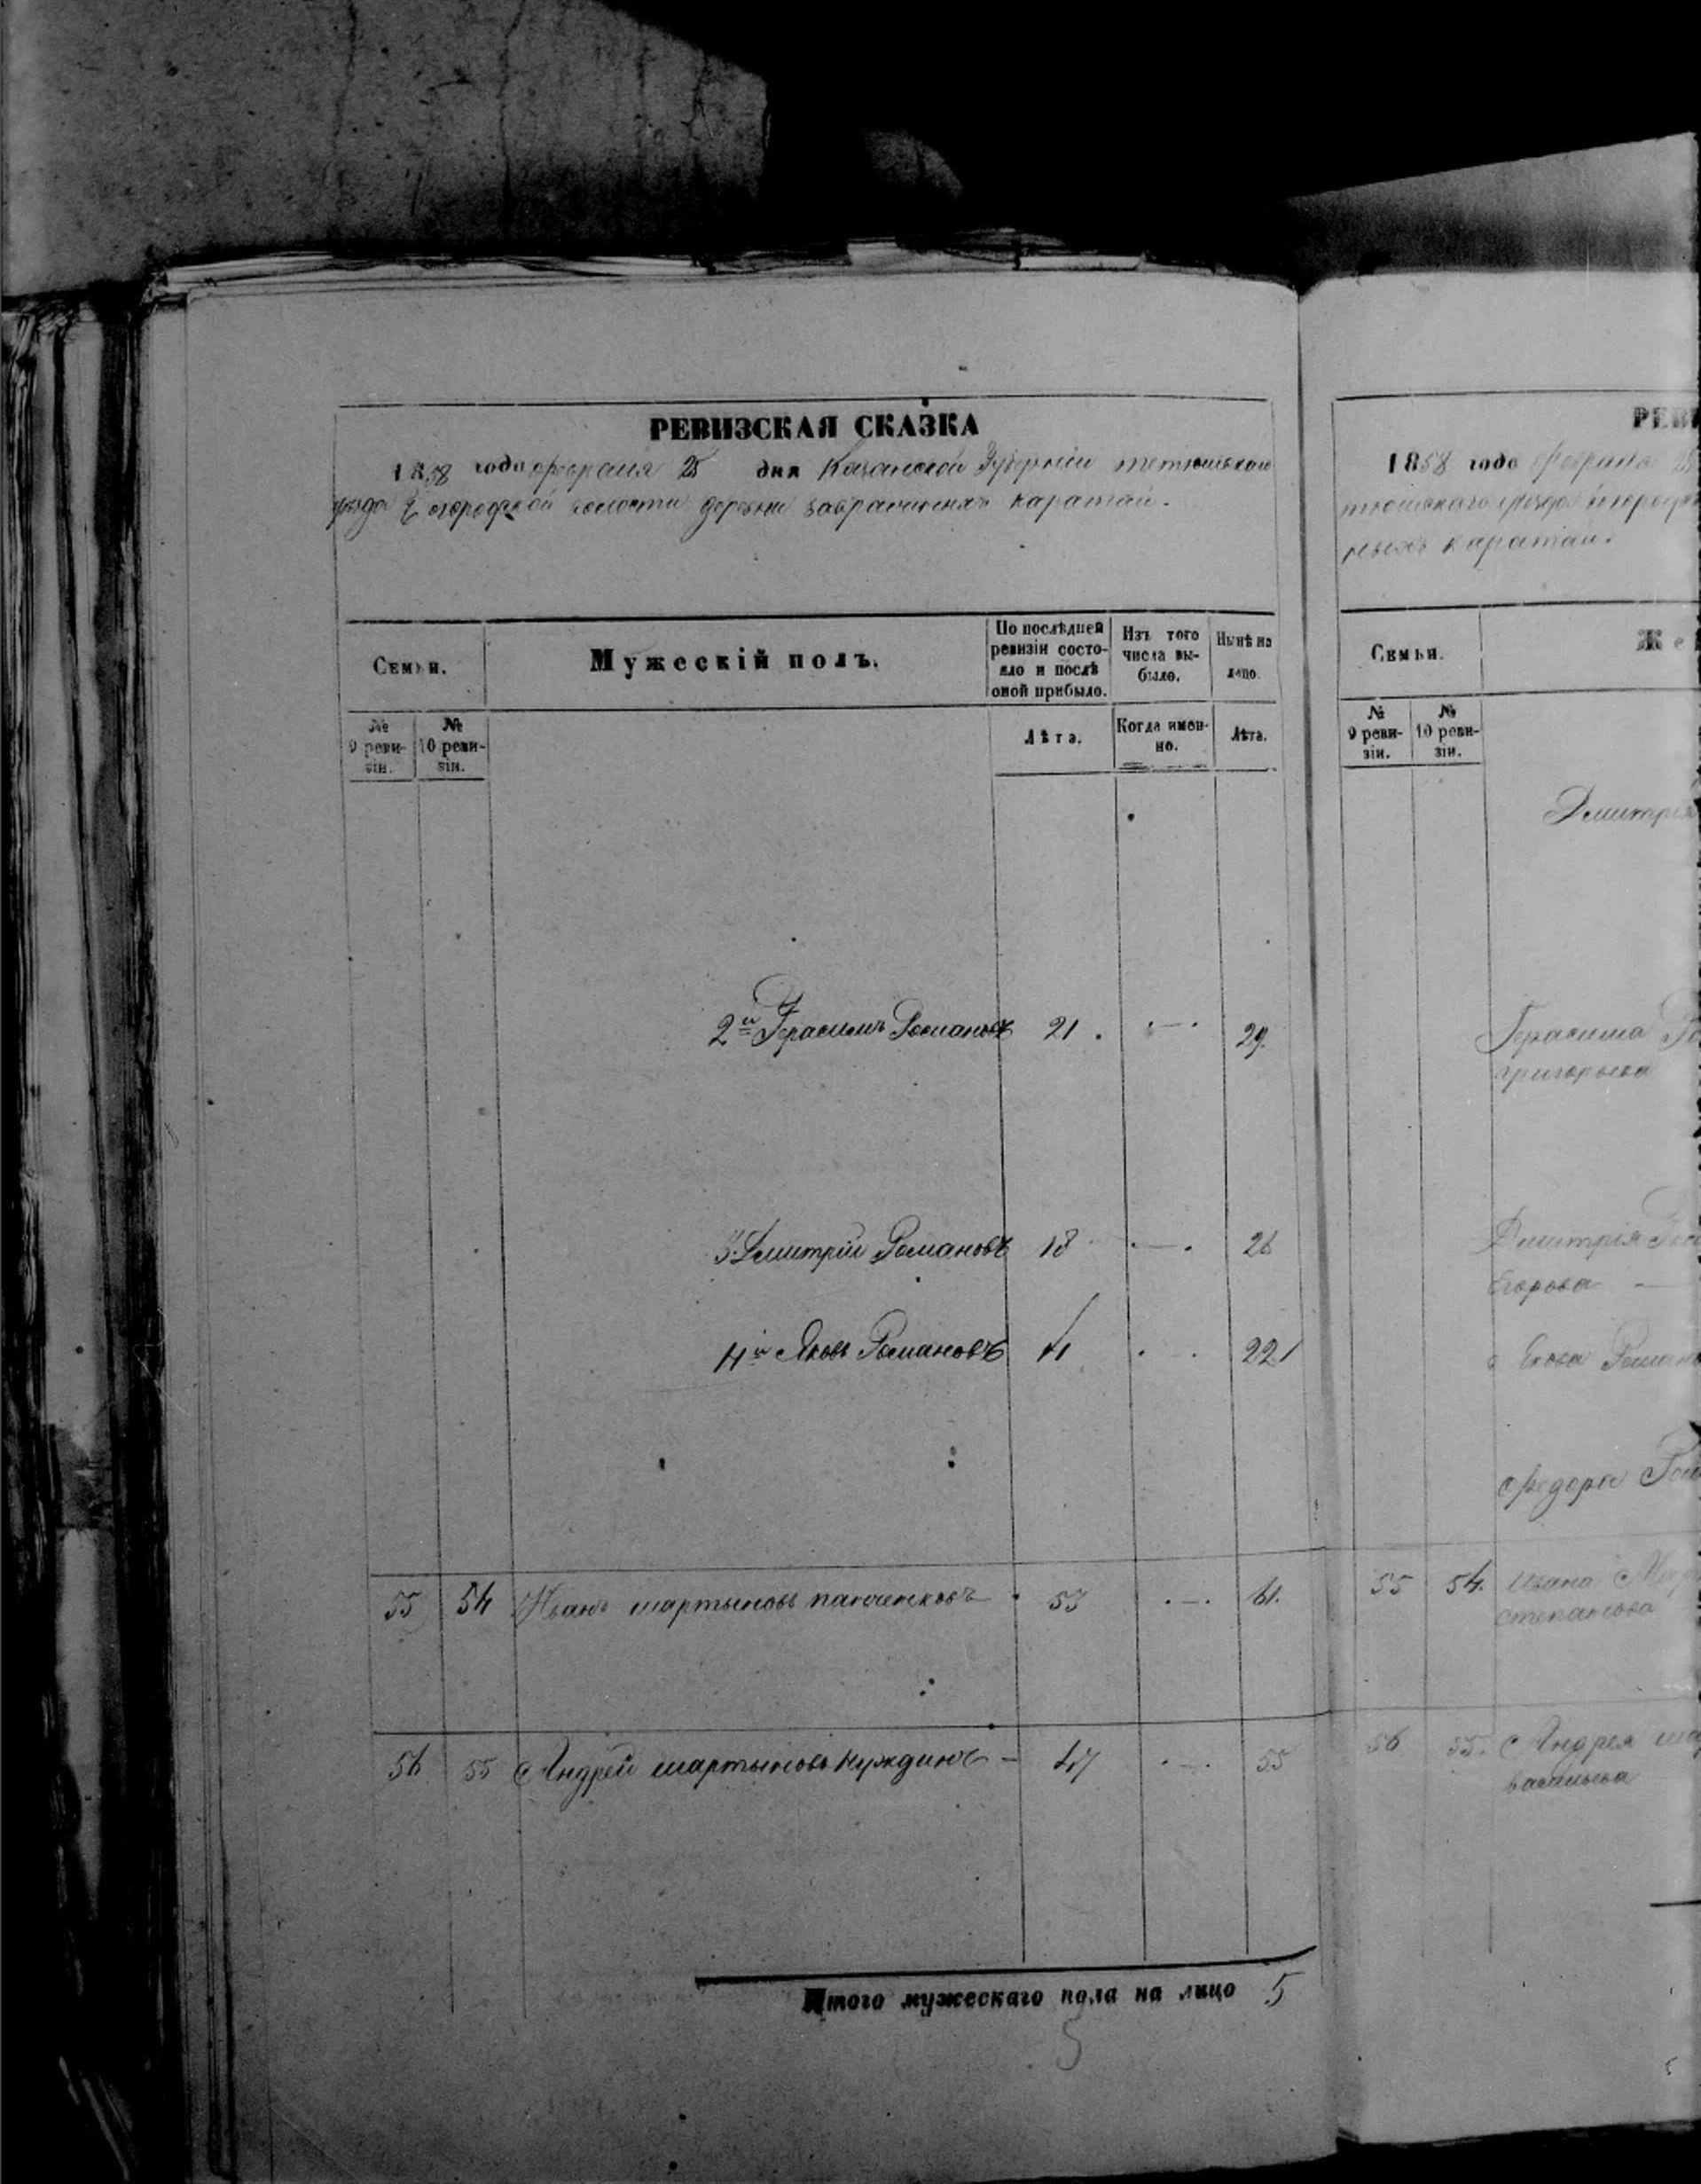 РЕВИЗСКАЯ СКАЗКА
1858 года февраля 25 дня Казанской Губерніи тетюшскаго
уѣзда волости деревни заовражныхъ каратай.
Семьи.
Мужескій полъ.
По послѣдней
ревизіи состо-
яло и послѣ
оной прибыло.
Изъ того
числа вы-
было.
Нынѣ на
лицо.
№
9 реви-
зіи.
№
10 реви-
зіи.
Лѣта.
Когда имен-
но.
Лѣта.
2й Герасимъ Романовъ 21. — 29.
3. Дмитрій Романовъ 18 — 26
4й Яковъ Романовъ 22
55 54 Иванъ мартыновъ 53 — 61.
56 55 Андрей мартыновъ нуждинъ — 47 — 55
Итого мужескаго пола на лицо 5
5
РЕВИ
1858 года февраля 25
тюшскаго уѣзда
каратай.
Семьи.
Же
№
9 реви-
зіи.
№
10 реви-
зіи.
Дмитрія
Герасима Ро
григорьева
Дмитрія Ром
Егорова —
Якова Романо
Федора Ром
55 54. Ивана Мар
степанова
56 55. Андрея мар
васильева